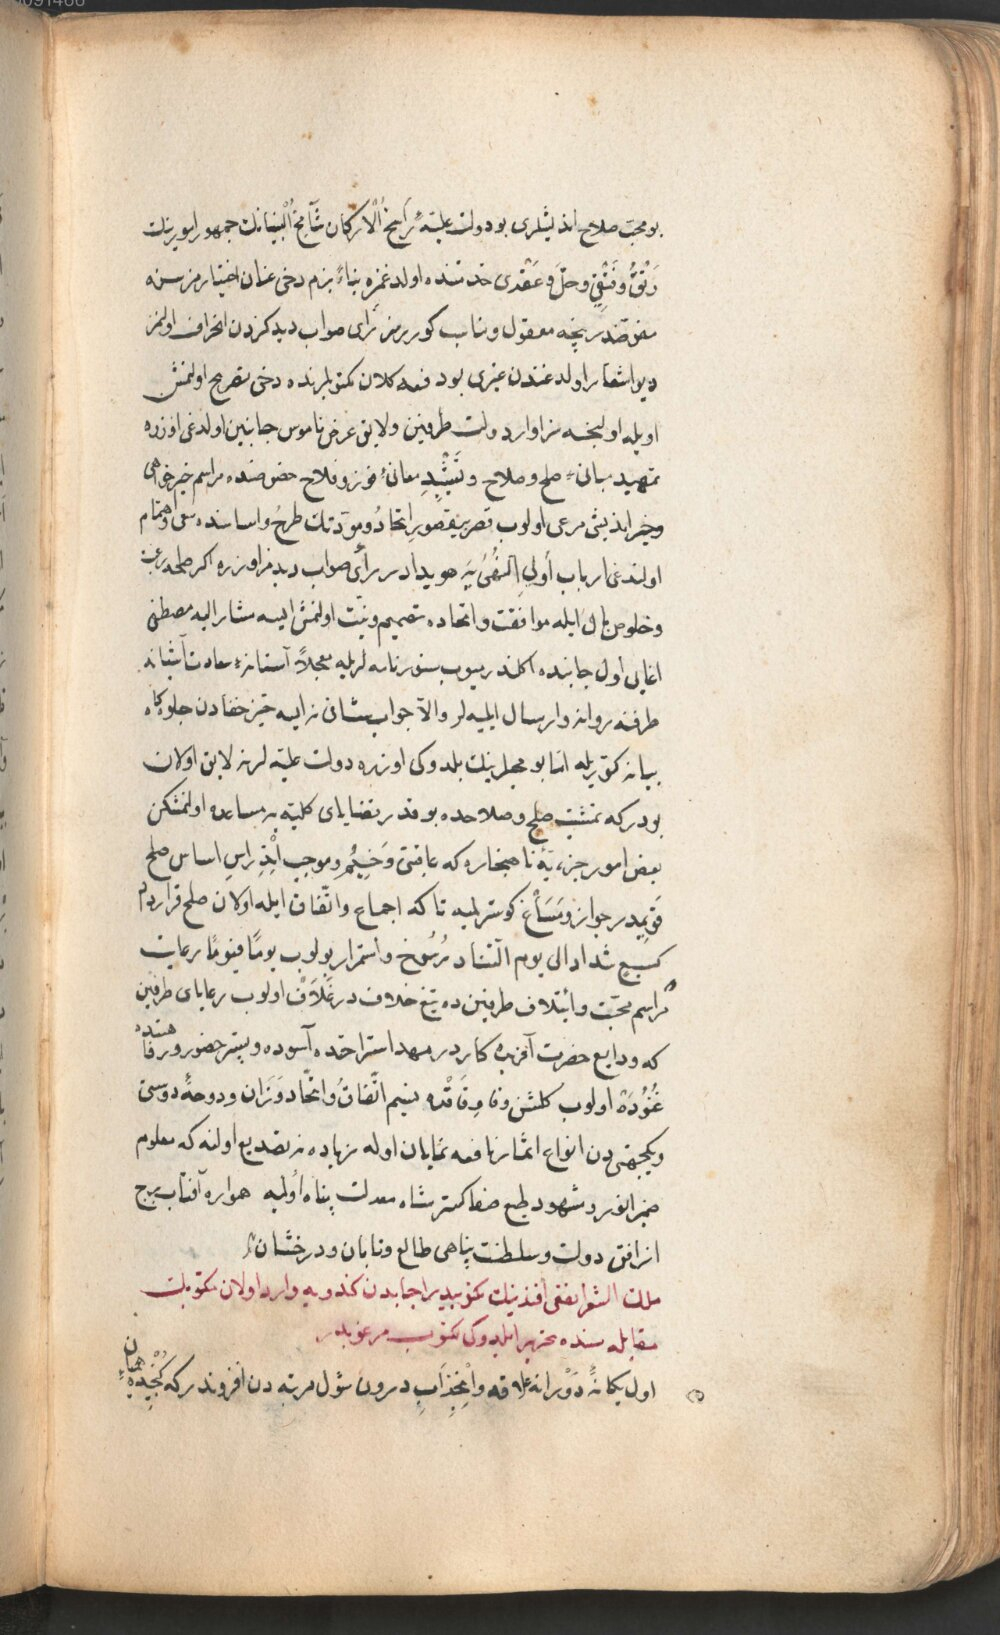 بو محبّ صلاح اندیشلری بو دولت علیّهٔ رَاسِخُ اْلاَرکان شَآمِخُ اْلبُنْیانك جمهور امورینك
رَتْقُ وفَتْقِ وحَلّ وعَقْدی خدمتنده اولدغمزه بناءً بزم دخی عنان اختیارمز سزه
مفوّضدر نیجه معقول ومناسب کوررسز رَأی صواب دیدکزدن انحراف اولنمز
دیو اشعار اولدغندن غیری بو دفعه کلان مکتوبلرنده دخی تصریح اولنمش
اویله اولیجه سزاوار دولت طرفین ولایق عرض ناموس جانبین اولدغی اوزره
تمهید مبانیٔ صلح وصلاح وتَشْیِیدِ معانیٔ فوز وفلاح خصوصنده مراسم خیرخواهی
وخیراندیشی مرعی اولوب قصر بیقصورِ اتحادُ ومودّتك طرحُ واساسنده سعی واهتمام
اولندغی ارباب أُولِی النُّهٰی یَه هویدادر رأی صواب دیدمز اوزره اکر صلحه رغبت
وخلوص بال ایله موافقت واتحاده تصمیم ونیّت اولنمش ایسه مشار الیه مصطفی
اغایی اول جانبده اکلندرمیوب سنورنامه لریله معجلاً آستانهٔ سعادت آشیانه
طرفنه روانه وارسال ایلیه لر والآ جواب شافی نه ایسه حیّز خفادن جلوه کاه
بیانه کتوریله امّا بو مخلصلرینك بلدوکی اوزره دولت علیّه لرنه لایق اولان
بودرکه تمشیت صلح وصلاحده بو قدر قضایای کلیّه یه مساعده اولنمشکن
بعض امور جزئیّهٔ ناهنجاره که عاقبتی وَخِیْم وموجب اِنْدِرَاسِ اساس صلح
قَوِیمدر جواز ومَسَاْغ کوسترلمیه تا که اجماع واتّفاق ایله اولان صلح قراردادم
کسبعٍ شداد الی یوم التناد رُسُوخ واستمرار بولوب یوماً فیوماً رعایت
مراسم محبّت وائتلاف طرفین ده تیغ خلاف در غَلَافْ اولوب رعایای طرفین
که ودایع حضرت آفریده کاردر مهد استراحتده آسوده وبستر حضور ورفاهیتده
غُنُوْدَهْ اولوب کلشن وفا وفاقده نسیم اتّفاقُ واتّحاد وَزَان ودوحهٔ دوستی
ویکجهتی دن انواع اثمار نافعه نمایان اوله زیاده نه تصدیع اولنه که معلوم
ضمیر انور ومشهود طبع صفاکستر شاه معدلت پناه اولمیه همواره آفتاب برج
از افق دولت وسلطنت پناهی طالع وتابان ودرخشان
ملك الشعرا نفعی افندینك مکتوبیدر احبابدن کندویه وارد اولان مکتوبك
مقابله سنده تحریر ایلدوکی مکتوب مرغوبدر
اول یکانهٔ دَوْرانه علاقه واِنْجِذَابِ درون شول مرتبه دن افزوندر که کُنْجِیْدهٔ همیان